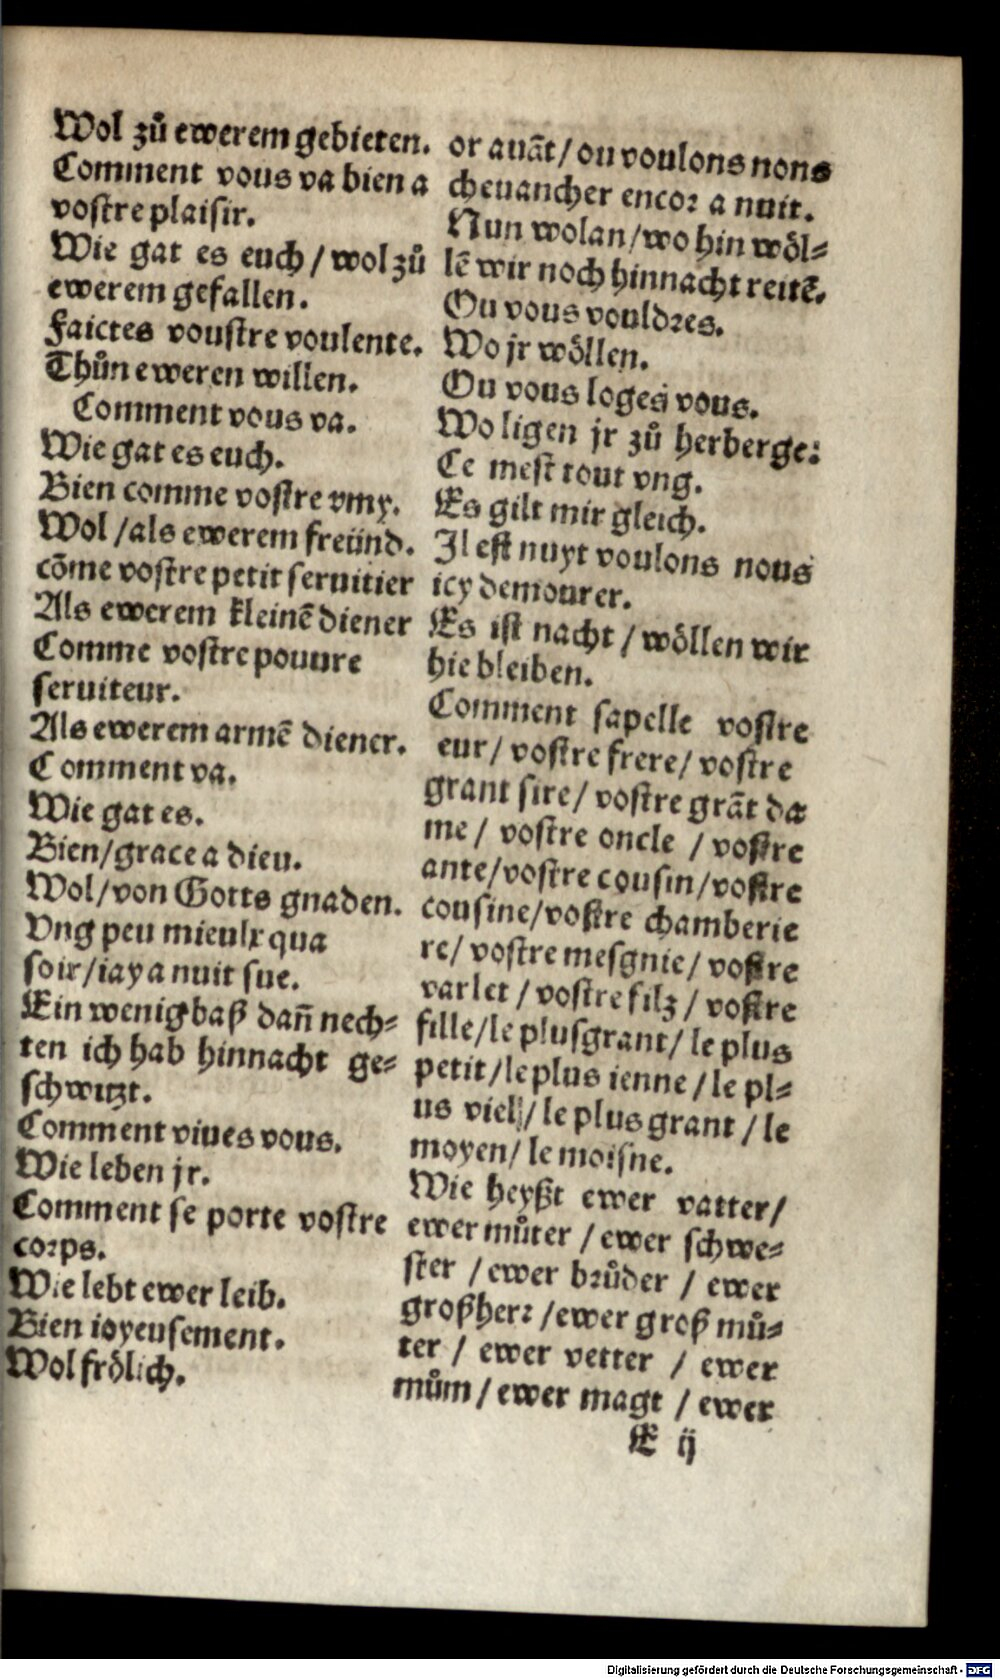 Wol zů ewerem gebieten.
Comment vous va bien a
vostre plaisir.
Wie gat es euch / wol zů
ewerem gefallen.
Faictes voustre voulente.
Thůn eweren willen.
Comment vous va.
Wie gat es euch.
Bien comme vostre vmy.
Wol / als ewerem freünd.
cōme vostre petit seruitier
Als ewerem kleinē diener
Comme vostre pouure
seruiteur.
Als ewerem armē diener.
Comment va.
Wie gat es.
Bien/grace a dieu.
Wol/von Gotts gnaden.
Vng peu mieulx qua
soir/iay a nuit sue.
Ein wenig baß dañ nech-
ten ich hab hinnacht ge-
schwitzt.
Comment viues vous.
Wie leben jr.
Comment se porte vostre
corps.
Wie lebt ewer leib.
Bien ioyeusement.
Wol frölich.
or auāt/ou voulons nons
cheuancher encor a nuit.
Nun wolan/wo hin wöl-
lē wir noch hinnacht reitē.
Ou vous vouldres.
Wo jr wöllen.
Ou vous loges vous.
Wo ligen jr zů herberge:
Ce mest tout vng.
Es gilt mir gleich.
Il est nuyt voulons nous
icy demourer.
Es ist nacht / wöllen wir
hie bleiben.
Comment sapelle vostre
eur/ vostre frere/ vostre
grant sire/ vostre grāt da
me / vostre oncle / vostre
ante/vostre cousin/vostre
cousine/vostre chamberie
re/ vostre mesgnie/ vostre
varlet / vostre filz / vostre
fille/le plusgrant/ le plus
petit/le plus ienne / le pl-
us viel / le plus grant / le
moyen/ le moisne.
Wie heyßt ewer vatter/
ewer můter / ewer schwe-
ster / ewer brůder / ewer
großherr /ewer groß mů-
ter / ewer vetter / ewer
mům / ewer magt / ewer
E ij
Digitalisierung gefördert durch die Deutsche Forschungsgemeinschaft - DFG